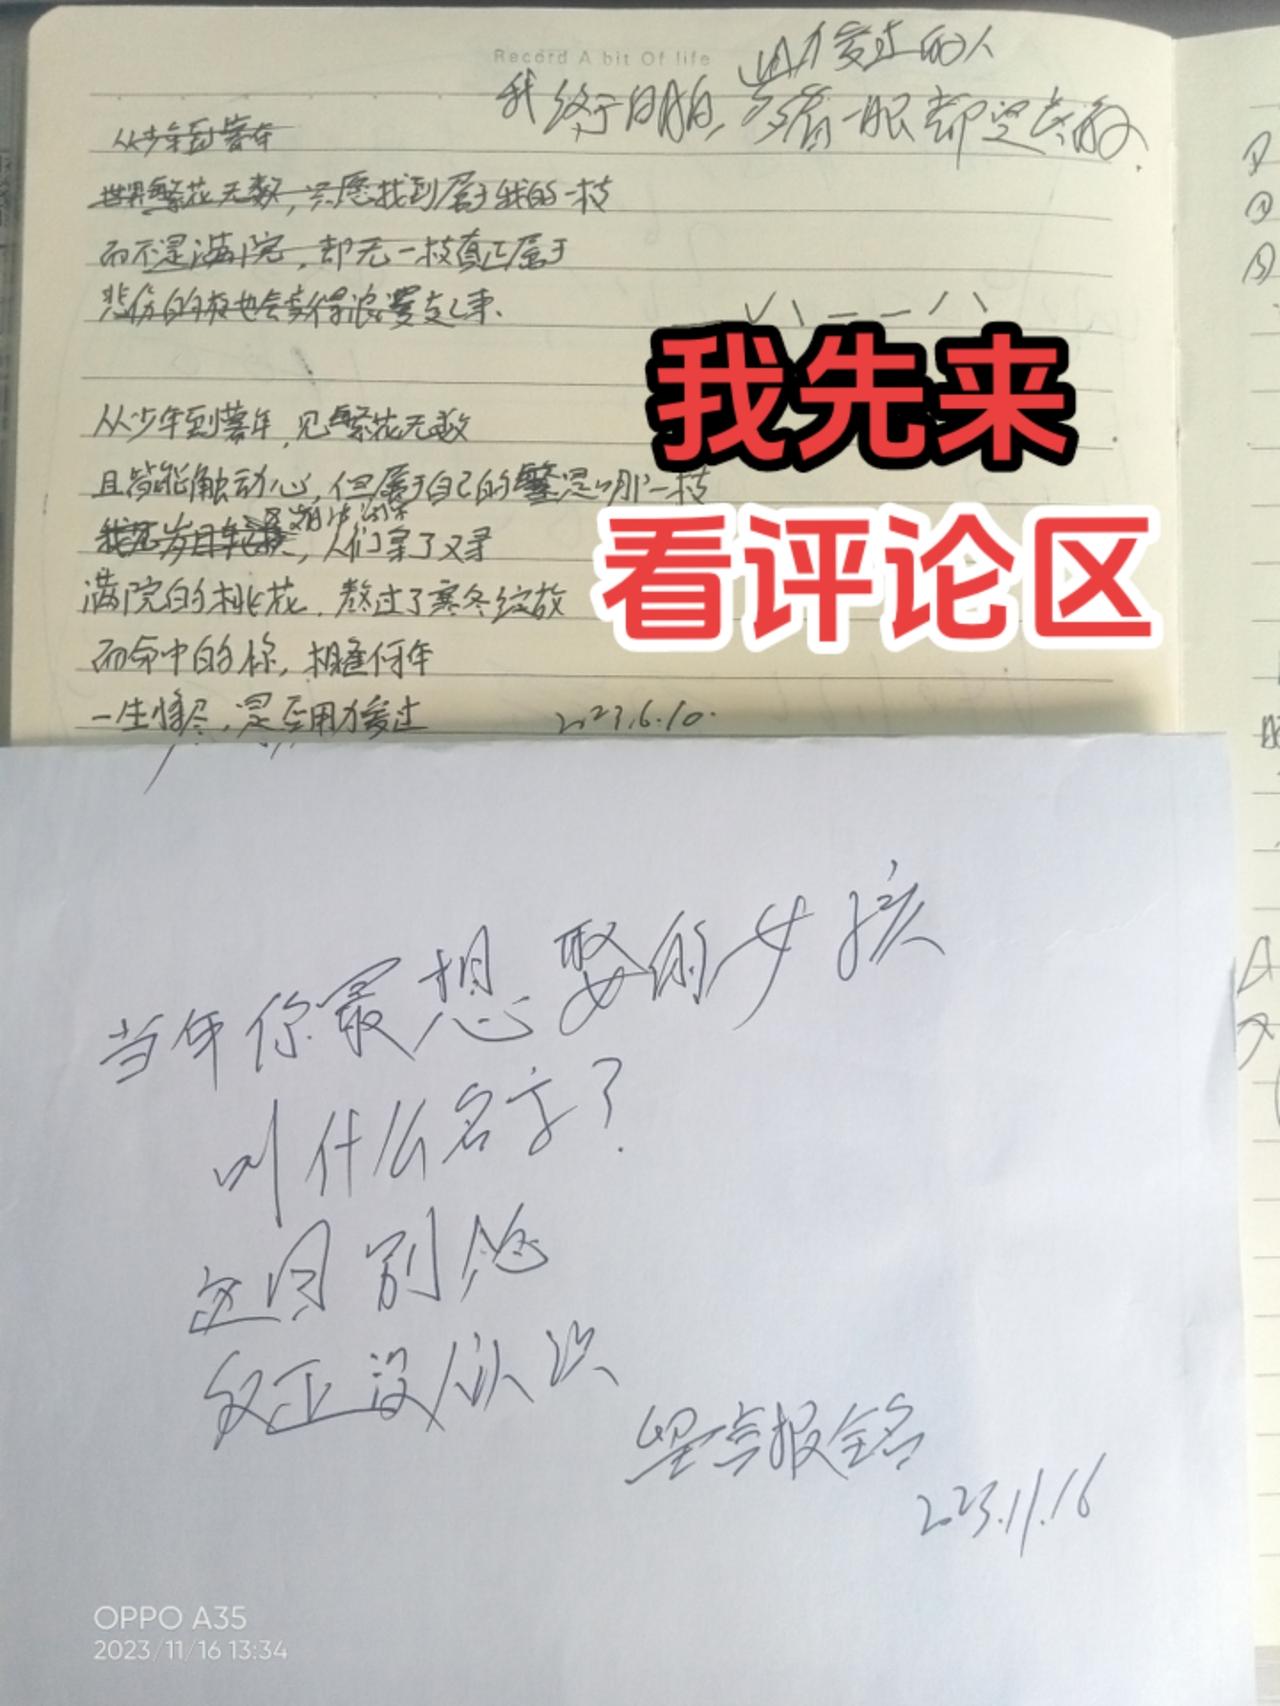 Record A bit Of life
用力爱过的人
我终于明白,多看一眼都觉
从少年到暮年
世界繁花无数,只愿找到属于我的一枝
而不是满院,却无一枝真正属于
悲伤的
从少年到暮年,见繁花无数
且皆能触动心,但属于自己的是那一枝
岁月,人们来了又来
满院的桃花,熬过了寒冬绽放
而命中的你,相逢何年
一生将尽,是否用力爱过
2023.6.10.
我先来
看评论区
当年你最想娶的女孩
叫什么名字?
这回别怂
反正没人认识
坚持报全名
2023.11.16
OPPO A35
2023/11/16 13:34